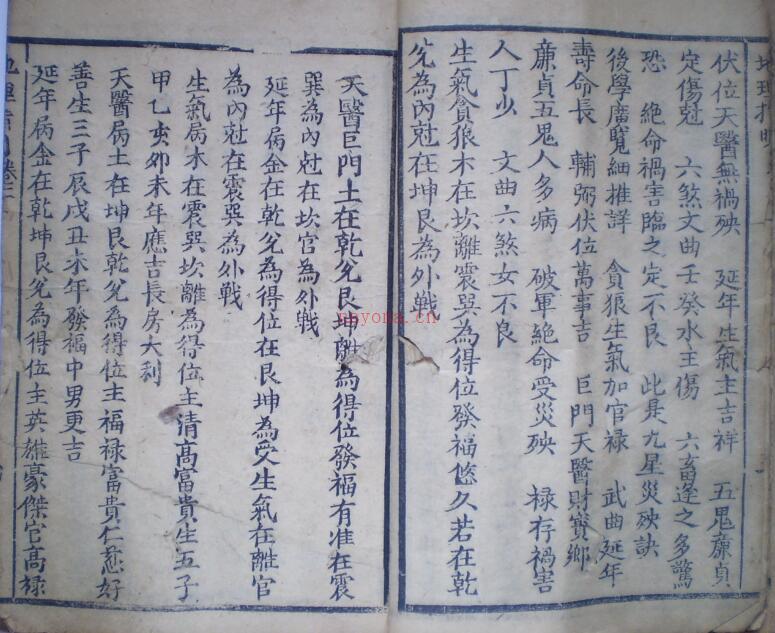 伏位天醫無禍殃　延年生氣主吉祥　五鬼廉貞
定傷尅　六煞文曲壬癸水主傷　六畜逢之多驚
恐　絶命禍害臨之定不良　此是九星災殃訣
後學廣覽細推詳　貪狼生氣加官禄　武曲延年
壽命長　輔弼伏位萬事吉　巨門天醫財寳鄉
廉貞五鬼人多病　破軍絶命受災殃　禄存禍害
人丁少　文曲六煞女不良
生氣貪狼木在坎離震巽為得位發福悠久若在乾
兊為內尅在坤艮為外戰
天醫巨門土在乾兊艮坤離為得位發福有准在震
巽為內尅在坎宮為外戰
延年病金在乾兊為得位在艮坤為受生氣在離宮
為內尅在震巽為外戰
生氣病木在震巽坎離為得位主清高富貴生五子
甲乙亥卯未年應吉長房大利
天醫病土在坤艮乾兊為得位主福禄富貴仁慈好
善生三子辰戌丑未年發福中男更吉
延年病金在乾坤艮兊為得位主英雄豪傑官高禄
yoyona.cn